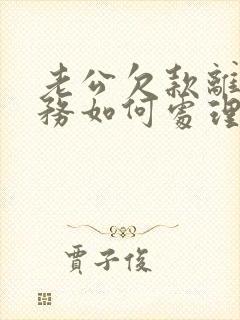 老公欠款離
務如何處理
賈子俊